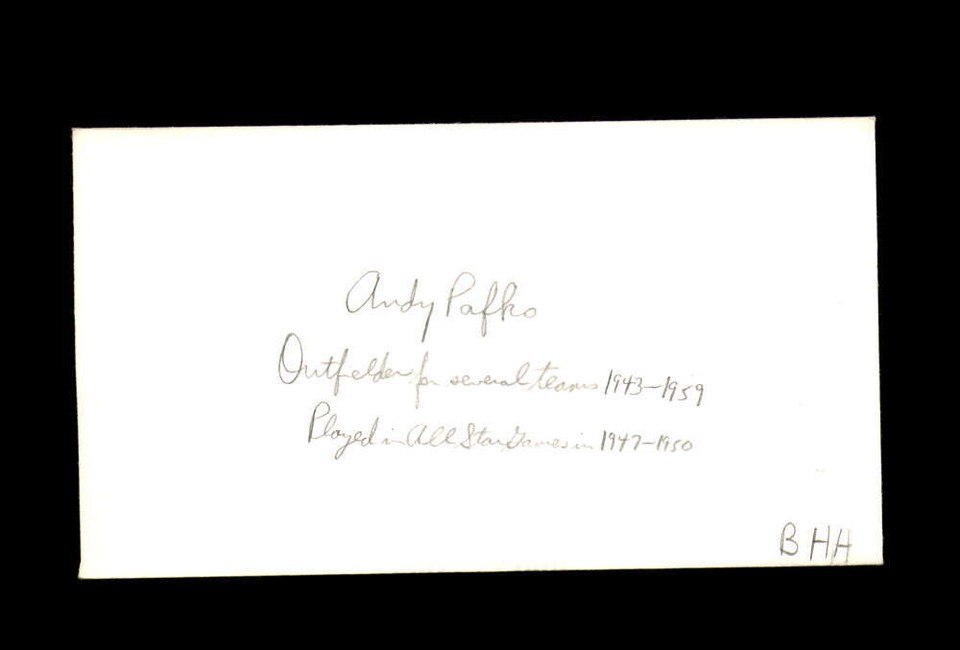 Andy Pafko
Outfielder for several teams 1943-1959
Played in All Star Games in 1947-1950
BHH